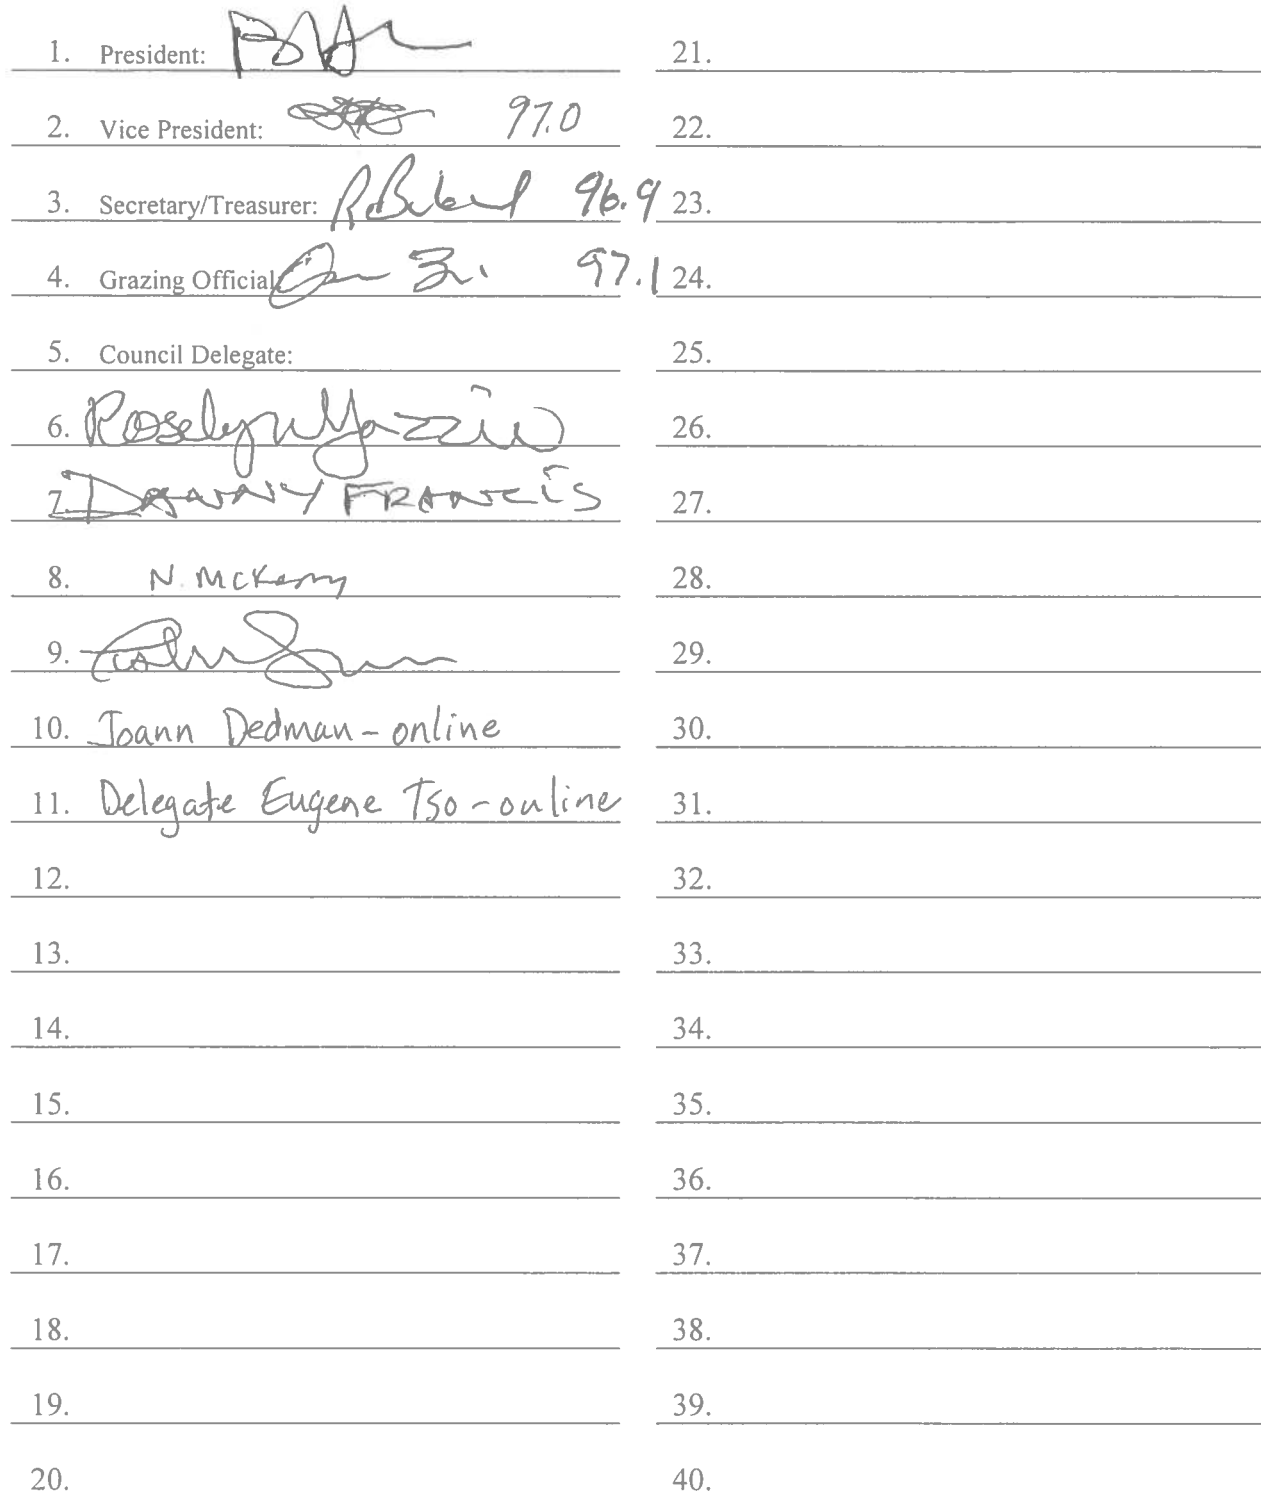 1. President:
2. Vice President: 97.0
3. Secretary/Treasurer: 96.9
4. Grazing Official: 97.1
5. Council Delegate:
6. Roselyn Yazzie
7. DANNY FRANCIS
8. N. McKerry
9.
10. Joann Dedman - online
11. Delegate Eugene Tso - online
12.
13.
14.
15.
16.
17.
18.
19.
20.
21.
22.
23.
24.
25.
26.
27.
28.
29.
30.
31.
32.
33.
34.
35.
36.
37.
38.
39.
40.